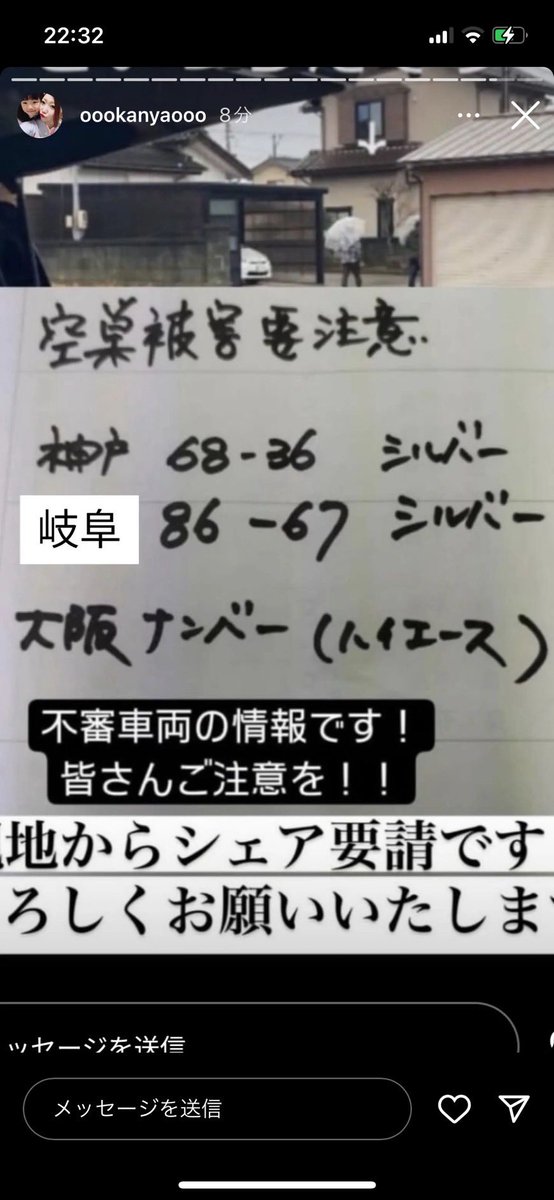 22:32
oookanyaooo 8分
空巣被害要注意
神戸 68-36 シルバー
岐阜 86-67 シルバー
大阪ナンバー(ハイエース)
不審車両の情報です!
皆さんご注意を!!
地からシェア要請です
ろしくお願いいたしま
ッセージを送信
メッセージを送信